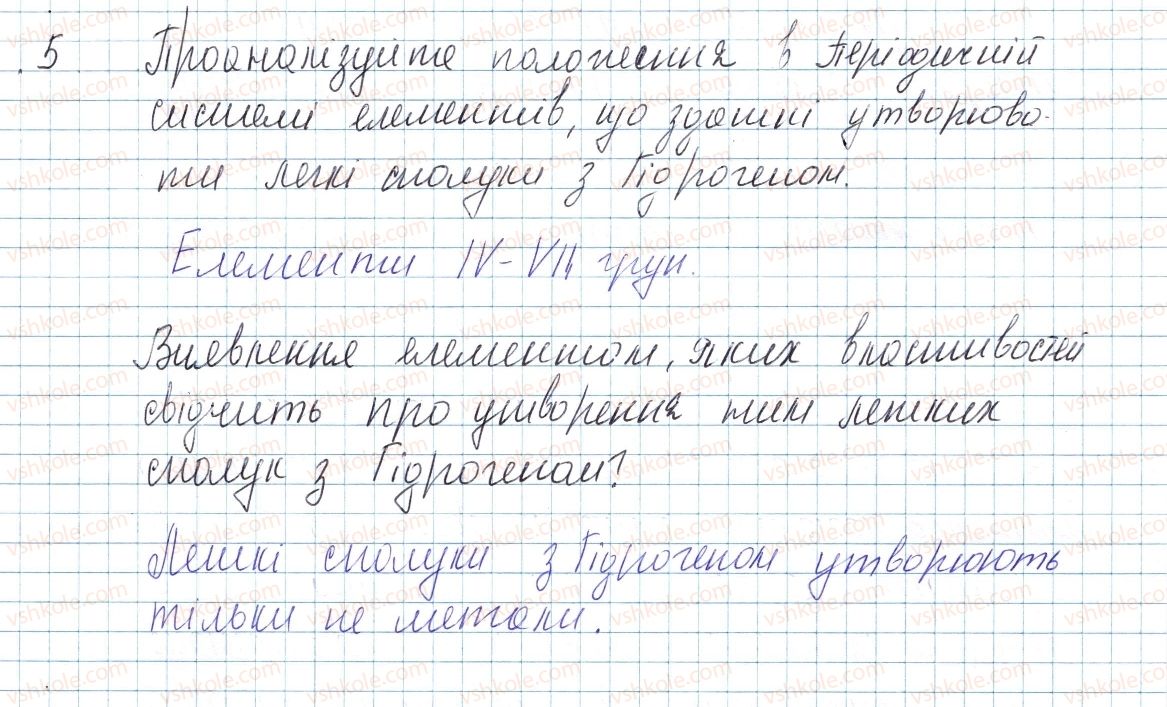 5 Проаналізуйте положення в Періодичній
системі елементів, що здатні утворюва-
ти легкі сполуки з Гідрогеном.
Елементи IV-VII груп.
Виявлення елементом, яких властивостей
свідчить про утворення ним летких
сполук з Гідрогеном?
Леткі сполуки з Гідрогеном утворюють
тільки не метали.